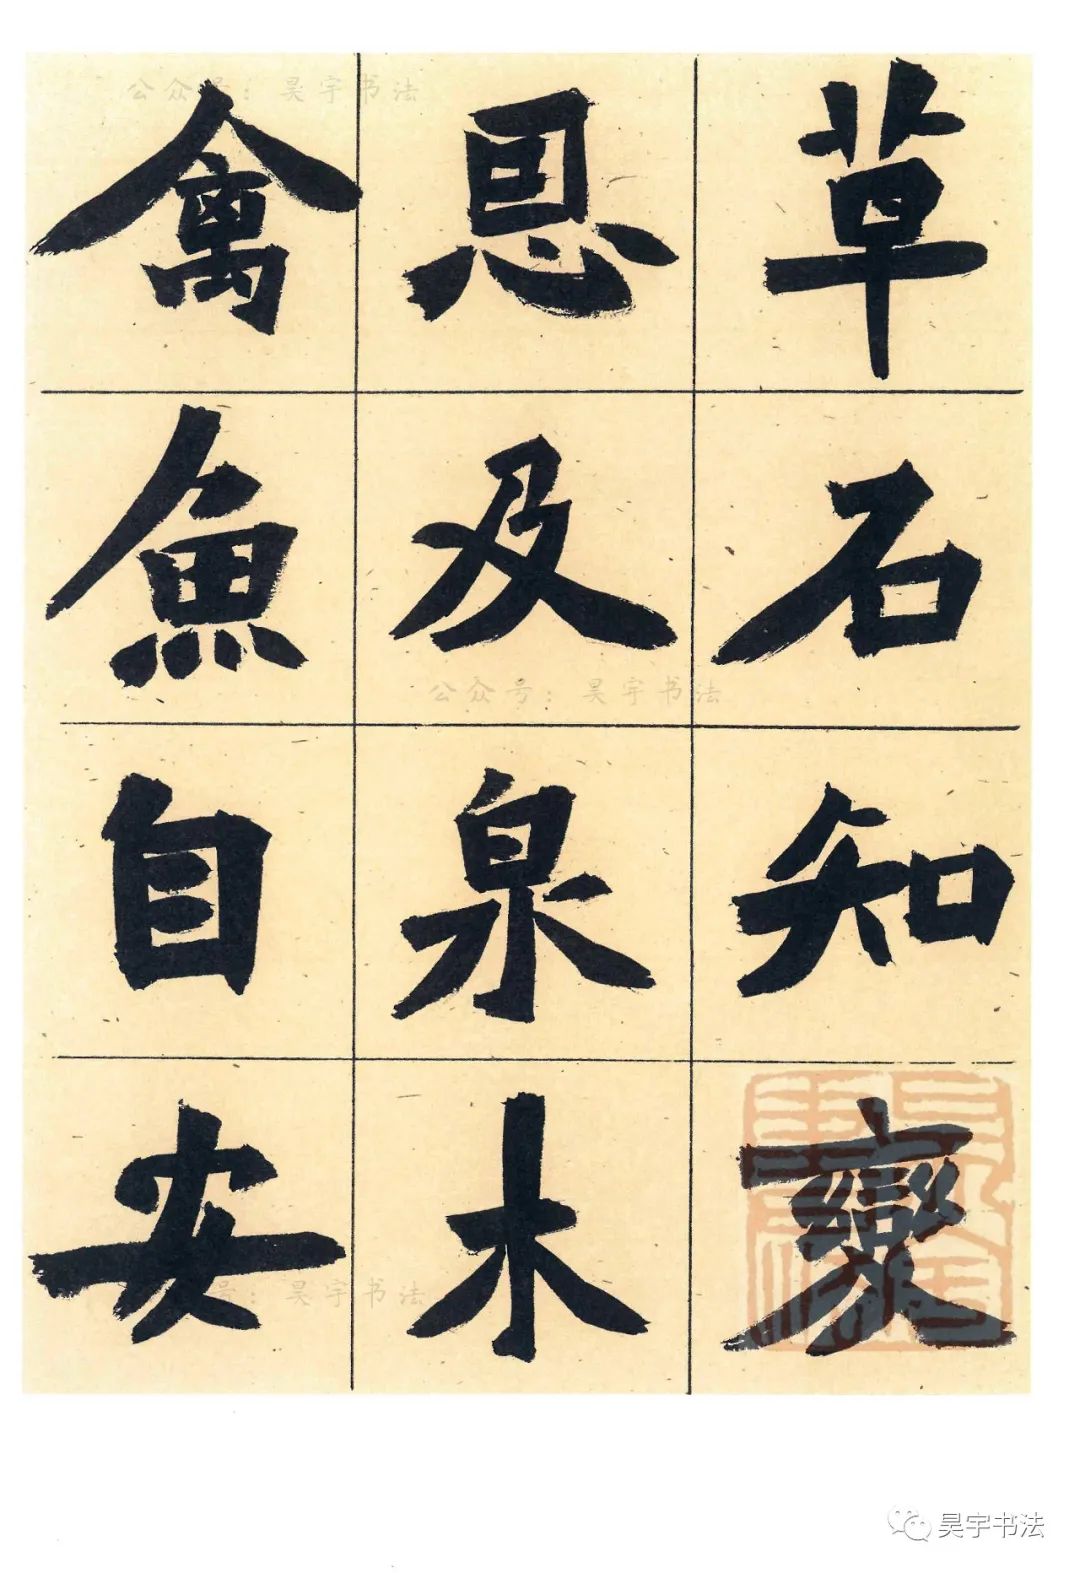 草石知變
恩及泉木
禽魚自安
公众号：昊宇书法
公众号：昊宇书法
号：昊宇书法
昊宇书法